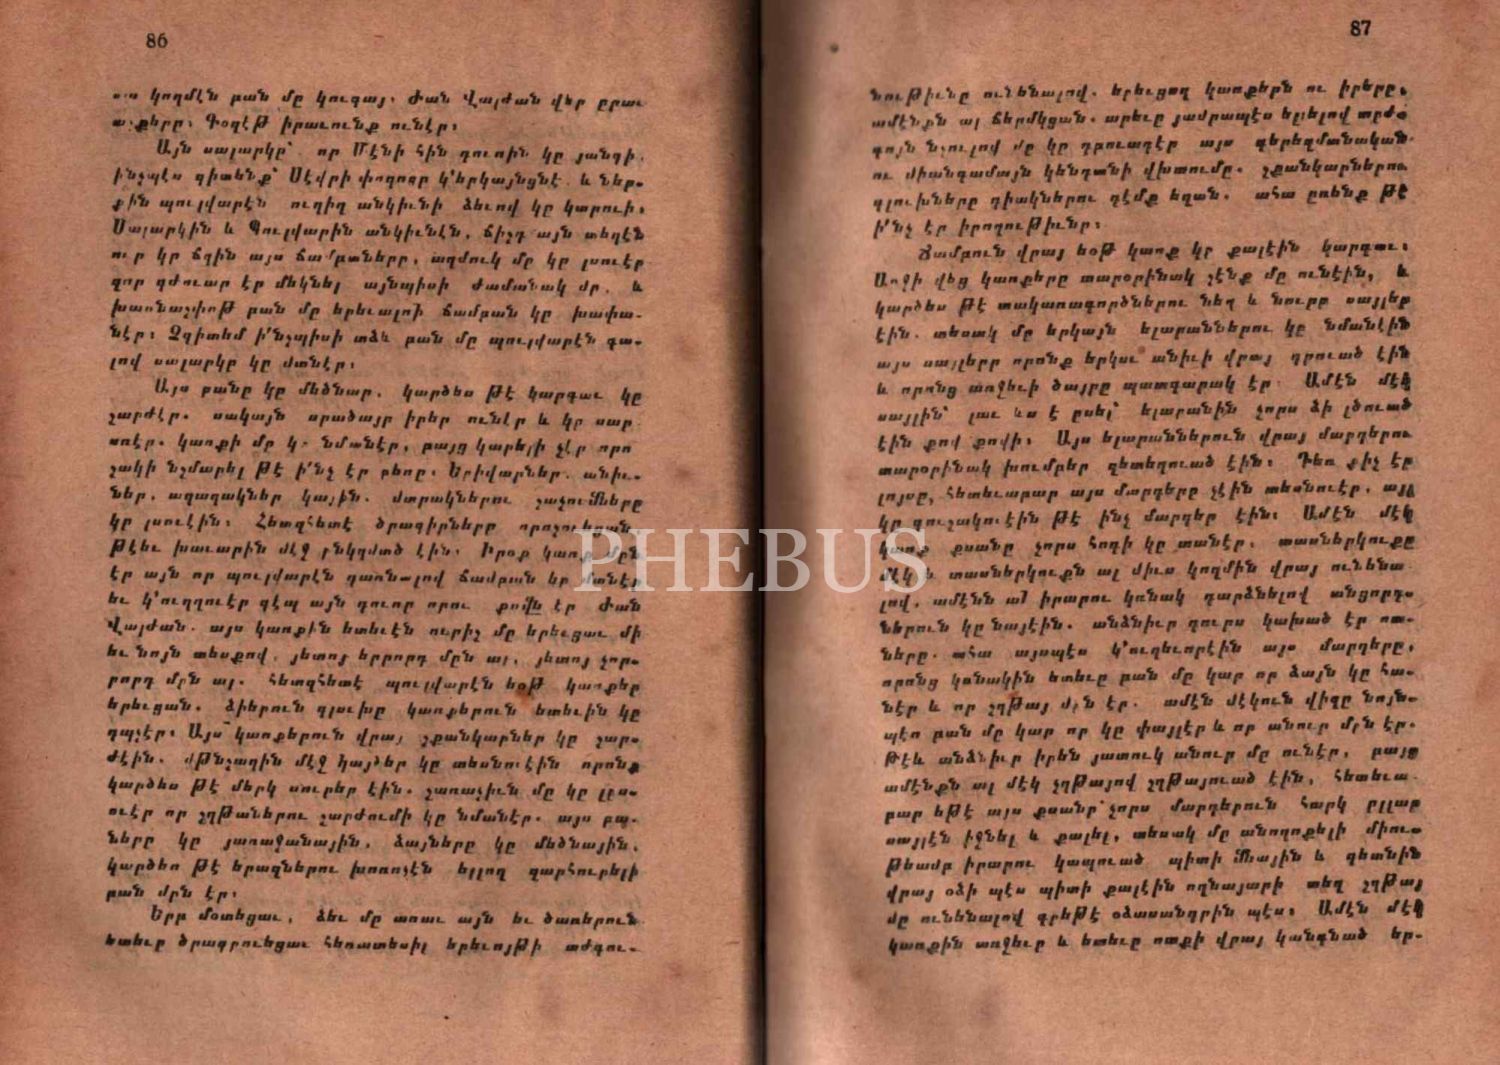 86
կողմէն բան մը կուգայ։ Ժան Վալժան վեր ըրաւ
աչքերը։ Գօզէթ իրաւունք ունէր։
Այն սալարկը՝ որ Մէնի հին դուռին կը յանգի,
ինչպէս գիտենք՝ Սէվրի փողոցը կ'երկայնցնէ և ներ-
քին պուլվարէն ուղիղ անկիւնի ձեւով կը կտրուի։
Սալարկին և Պուլվարին անկիւնէն, ճիշդ այն տեղէն
ուր կը ճղին այս ճամբաները, աղմուկ մը կը լսուէր
զոր դժուար էր մեկնել այնպիսի ժամանակ մը, և
խառնաշփոթ բան մը երեւալով ճամբան կը խափա-
նէր։ Չգիտեմ ի՛նչպիսի տձև բան մը պուլվարէն գա-
լով սալարկը կը մտնէր։
Այս բանը կը մեծնար, կարծես թէ կարգաւ կը
շարժէր. սակայն սրածայր իրեր ունէր և կը սար-
սռէր. կառքի մը կը նմանէր, բայց կարելի չէր որո-
շակի նշմարել թէ ի՛նչ էր բեռը։ Երիվարներ, անիւ-
ներ, աղաղակներ կային. մտրակներու շաչումները
կը լսուէին։ Հետզհետէ ծրագիրները որոշուեցան,
թէեւ խաւարին մէջ ընկղմած էին։ Իրօք կառք մըն
էր այն որ պուլվարէն դառնալով ճամբան կը մտնէր
եւ կ'ուղղուէր դէպ այն դուռը որու քովն էր Ժան
Վալժան. այս կառքին ետեւէն ուրիշ մը երեւցաւ մի
եւ նոյն տեսքով, յետոյ երրորդ մըն ալ, յետոյ չոր-
րորդ մըն ալ. հետզհետէ պուլվարէն եօթ կառքեր
երեւցան. ձիերուն գլուխը կառքերուն ետեւին կը
դպչէր։ Այս կառքերուն վրայ շքանկարներ կը շար-
ժէին. մթնշաղին մէջ կայծեր կը տեսնուէին որոնք
կարծես թէ մերկ սուրեր էին. շառաչիւն մը կը լըս-
ուէր որ շղթաներու շարժումի կը նմանէր. այս բա-
ները կը յառաջանային, ձայները կը մեծնային,
կարծես թէ երազներու խոռոչէն ելլող զարհուրելի
բան մըն էր։
Երբ մօտեցաւ, ձեւ մը առաւ այն եւ ծառերուն
ետեւը ծրագրուեցաւ հեռատեսիլ երեւոյթի տժգու-
87
նութիւնը ունենալով. երեւցող կառքերն ու իրերը,
ամէնքն ալ ճերմկցան. արեւը յամրապէս ելլելով տըժ-
գոյն նշուլով մը կը դրուագէր այս գերեզմանական
ու միանգամայն կենդանի վխտումը. շքանկարներու
գլուխները դիակներու դէմք եղան. ահա ըսենք թէ
ի՛նչ էր իրողութիւնը։
Ճամբուն վրայ եօթ կառք կը քալէին կարգաւ։
Առջի վեց կառքերը տարօրինակ շէնք մը ունէին, և
կարծես թէ տակառագործներու նեղ և նուրբ սայլեր
էին. տեսակ մը երկայն ելարաններու կը նմանէին
այս սայլերը որոնք երկու անիւի վրայ դրուած էին
և որոնց առջեւի ծայրը պատգարակ էր։ Ամէն մէկ
սայլին՝ լաւ ևս է ըսել՝ ելարանին չորս ձի լծուած
էին քով քովի։ Այս ելարաններուն վրայ մարդերու
տարօրինակ խումբեր զետեղուած էին։ Դեռ քիչ էր
լոյսը, հետեւաբար այս մարդերը չէին տեսնուէր, այլ
կը գուշակուէին թէ ինչ մարդեր էին։ Ամէն մէկ
կառք քսանը չորս հոգի կը տանէր, տասներկուքը
մէկ և տասներկուքն ալ միւս կողմին վրայ ունենա-
լով, ամէնն ալ իրարու կռնակ դարձնելով անցորդ-
ներուն կը նայէին. անձնիւր դուրս կախած էր ոտ-
ները. ահա այսպէս կ'ուղեւորէին այս մարդերը,
որոնց կռնակին ետեւը բան մը կար որ ձայն կը հա-
նէր և որ շղթայ մըն էր. ամէն մէկուն վիզը նոյն-
պէս բան մը կար որ կը փայլէր և որ անուր մըն էր.
Թէև անձնիւր իրեն յատուկ անուր մը ունէր, բայց
ամէնքն ալ մէկ շղթայով շղթայուած էին, հետեւա-
բար եթէ այս քսանը՝ չորս մարդերուն հարկ ըլլար
սայլէն իջնել և քալել, տեսակ մը անողոքելի միու-
թեամբ իրարու կապուած պիտի մնային և գետնին
վրայ օձի պէս պիտի քալէին ողնայարի տեղ շղթայ
մը ունենալով գրեթէ օձասանդրին պէս։ Ամէն մէկ
կառքին առջեւը և ետեւը ոտքի վրայ կանգնած եր-
PHEBUS